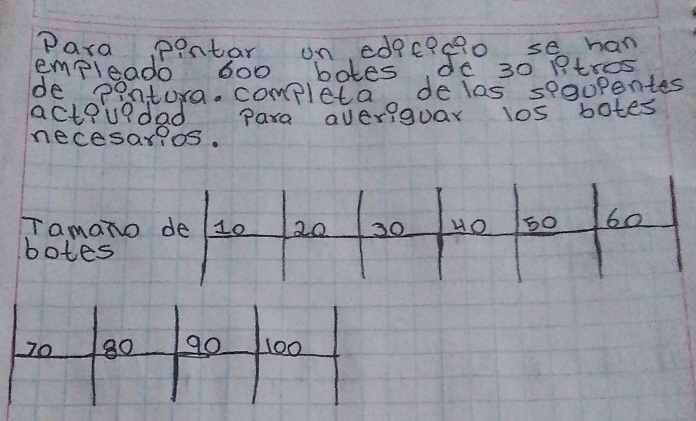 Para pintar un edificio se han
empleado 600 botes de 30 litros
de pintura. completa de las siguientes
actividad para averiguar los botes
necesarios.
Tamaño de 10 20 30 40 50 60
botes
70 80 90 100